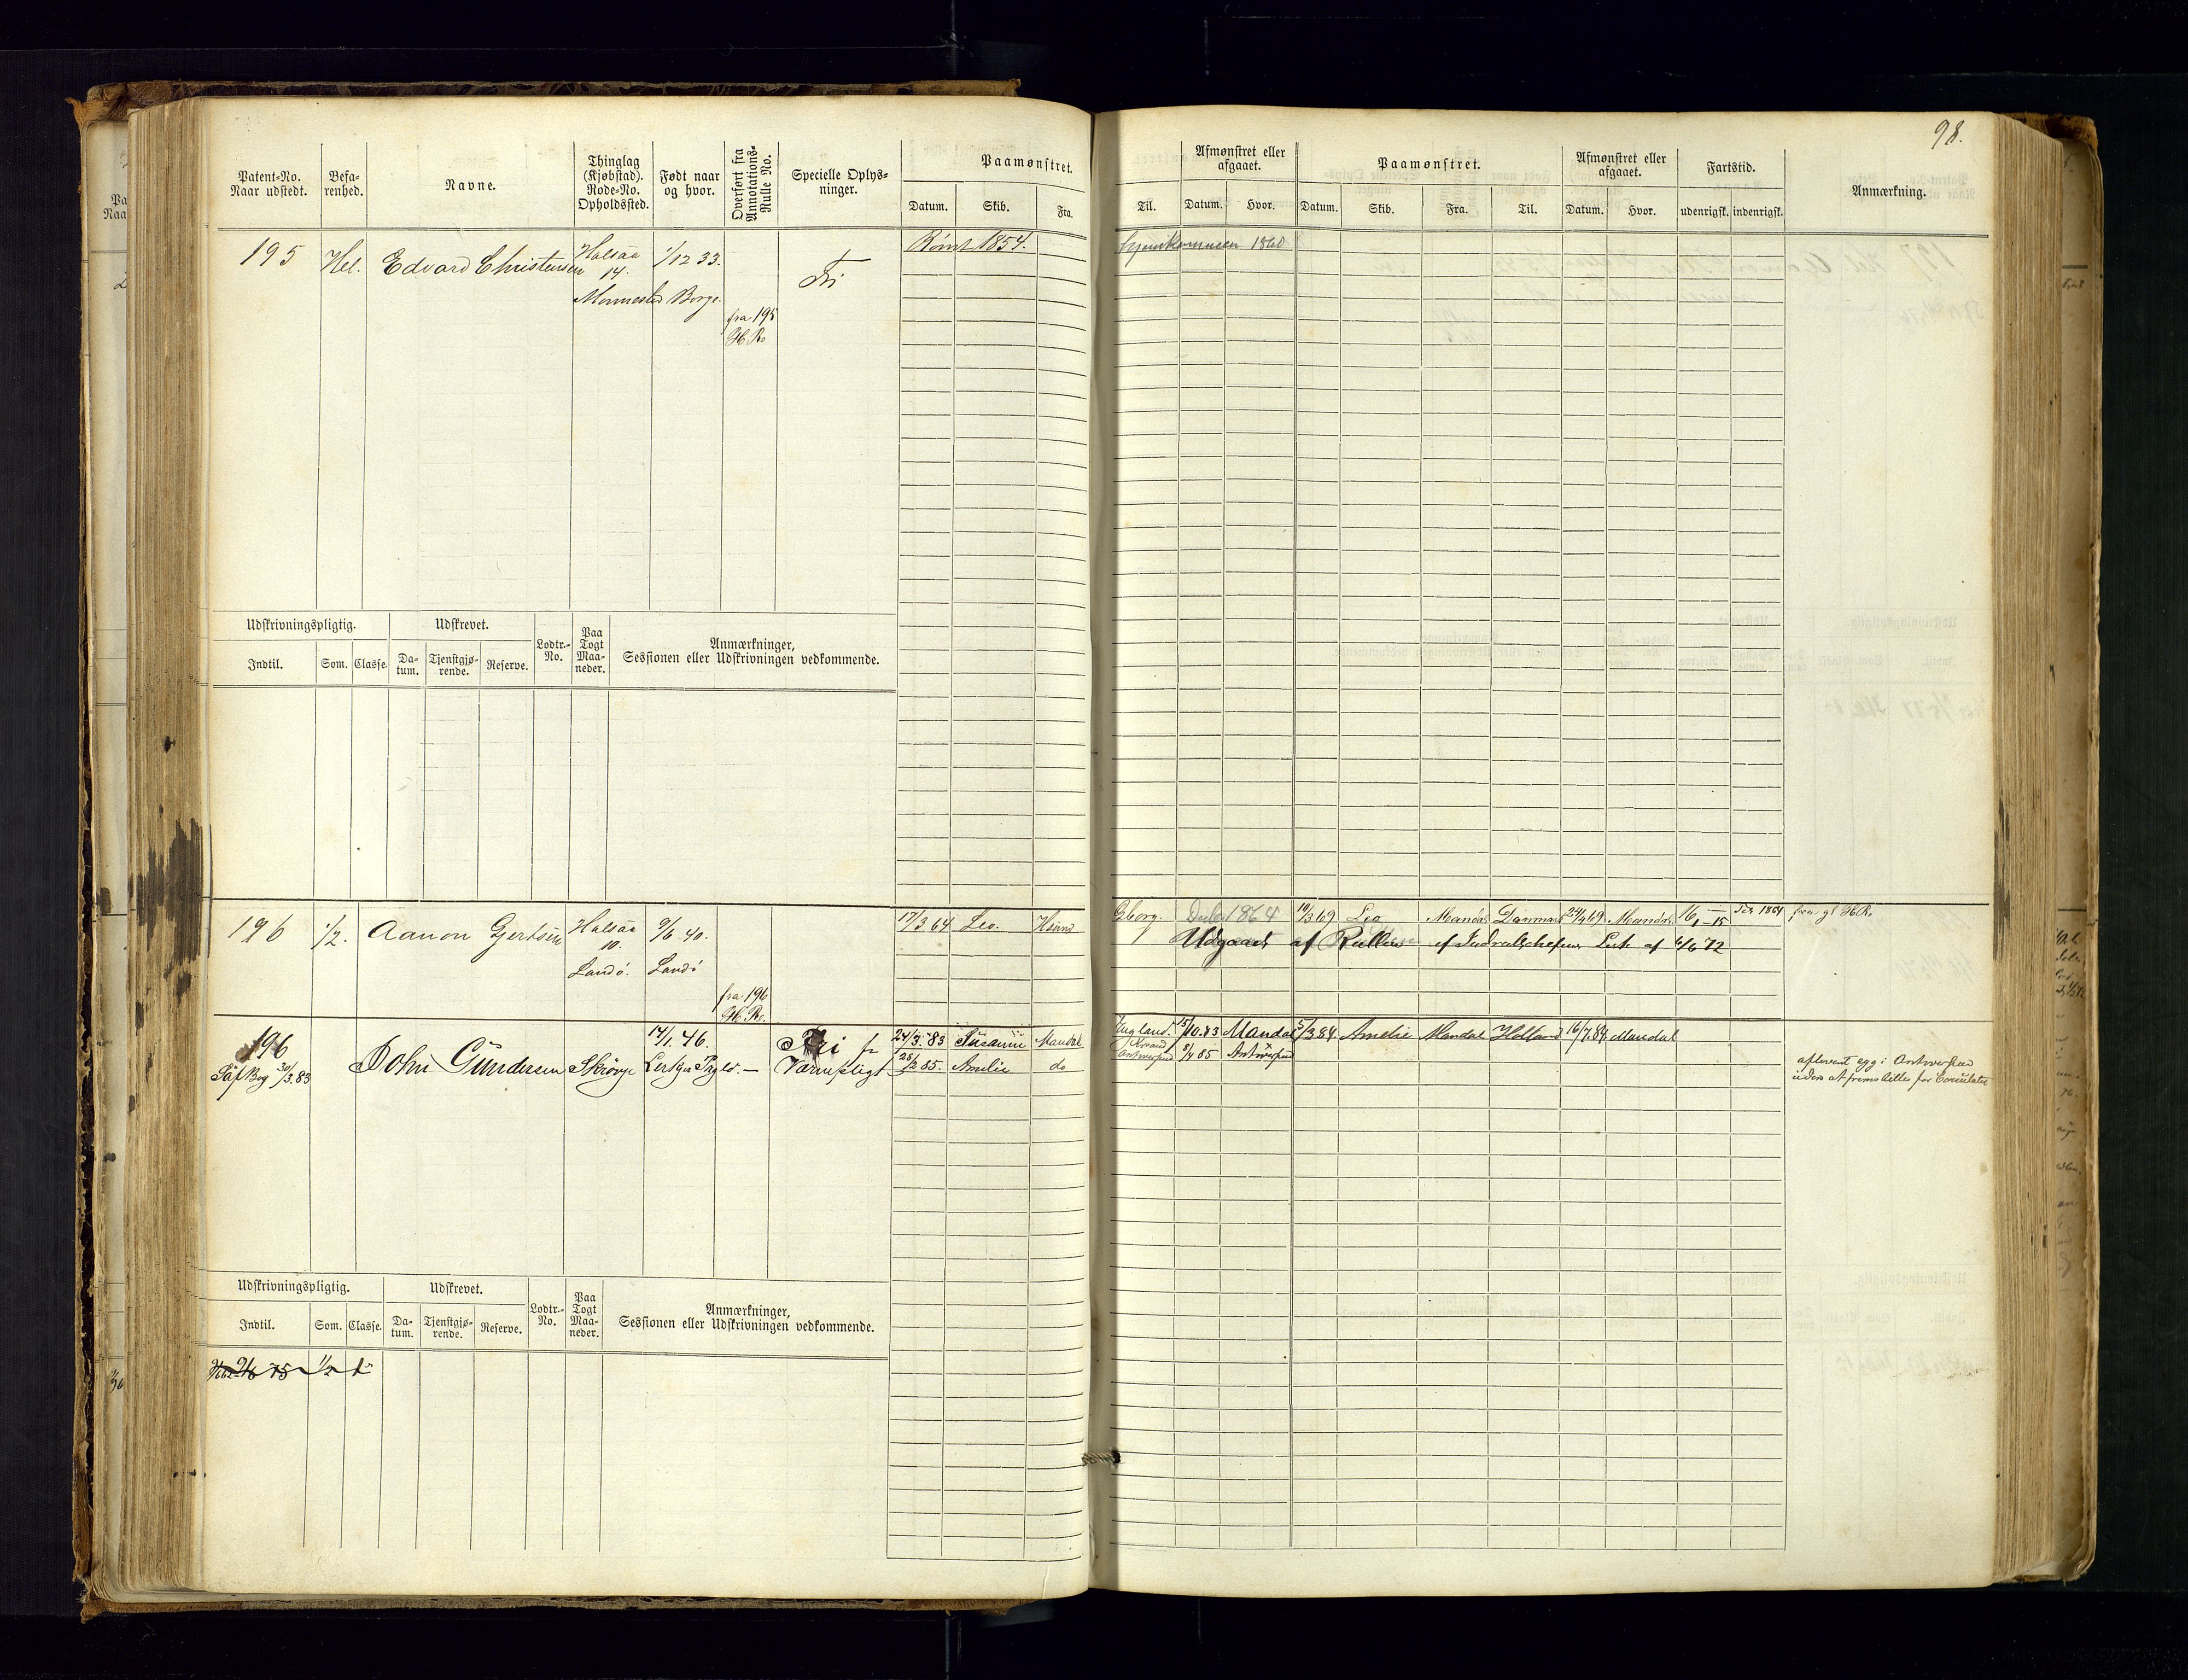 98.
Patent-No. Naar udstedt.
Befarenhed.
Navne.
Thinglag (Kjøbstad). Rode-No. Opholdssted.
Født naar og hvor.
Overført fra Annotations-Rulle No.
Specielle Oplysninger.
Paamønstret.
Datum. Skib. Fra.
Til.
Afmønstret eller afgaaet.
Datum. Hvor.
Paamønstret.
Datum. Skib. Fra. Til.
Afmønstret eller afgaaet.
Datum. Hvor.
Fartstid.
udenrigsk. indenrigsk.
Anmærkning.
195 Hel. Edvard Christensen Halsaa 1/12 33. Fri Rømt 1854. hjemkommen 1860
14.
Borge.
fra 195
H.R.
Udskrivningspligtig. Udskrevet. Lodtr.-No. Paa Togt Maaneder. Anmærkninger, Sessionen eller Udskrivningen vedkommende.
Indtil. Som. Classe. Datum. Tjenstgjørende. Reserve.
196 1/2. Aanon Gjertsen Halsaa 9/6 40. 17/3 64 Leo. Gborg. 1864 19/3 69 Leo Mandal Danmark 24/4 69 Mandal 16/ 15 1864 fra gl H.R.
10.
Udgaaet af Rullerne 6/6 72
Landø. Landø
fra 196
H.R.
196 John Gundersen Skrøvje 14/1. 46. Fri fr 24/3. 83 Susanne Mandal England. 15/10. 83 Mandal 5/3 84 Amelie Mandal Holland 16/7 84 Mandal
Søf Bog 30/3. 83 Værnepligt 25/2 85. Amelie do Antwerpen 8/4 85 Antwerpen
afløvent egg i Antwerpen
uden at fremstilles for Consulatet
Udskrivningspligtig. Udskrevet. Lodtr.-No. Paa Togt Maaneder. Anmærkninger, Sessionen eller Udskrivningen vedkommende.
Indtil. Som. Classe. Datum. Tjenstgjørende. Reserve.
75 1/2